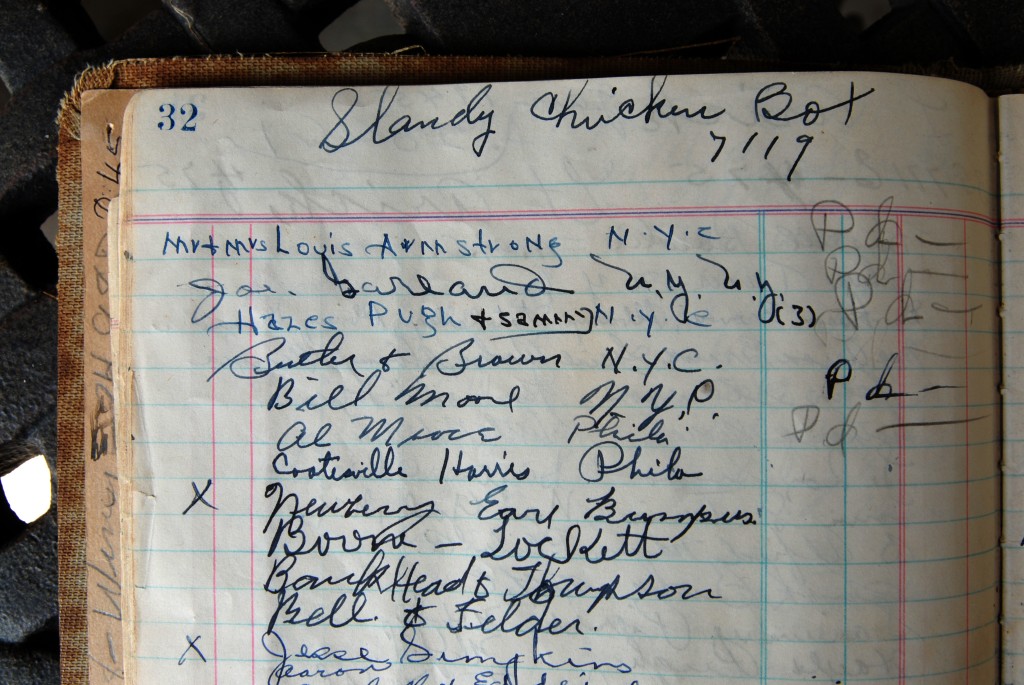 32
Slandy Chicken Box
7/19
Mr + Mrs Louis Armstrong N.Y.C Pd —
Joe. Garland N.Y. N.Y. Pd —
Hazes Pugh + Sammy N.Y.C (3) Pd —
Butler & Brown N.Y.C.
Bill Moore N.Y.P. Pd —
Al Moore Phila. Pd —
Coatesville Harris Phila
X Newberry Earl Bumpus
Boom - Lockett
BankHead & Thompson
Bell & Felder.
X Jesse Simpkins
Aaron